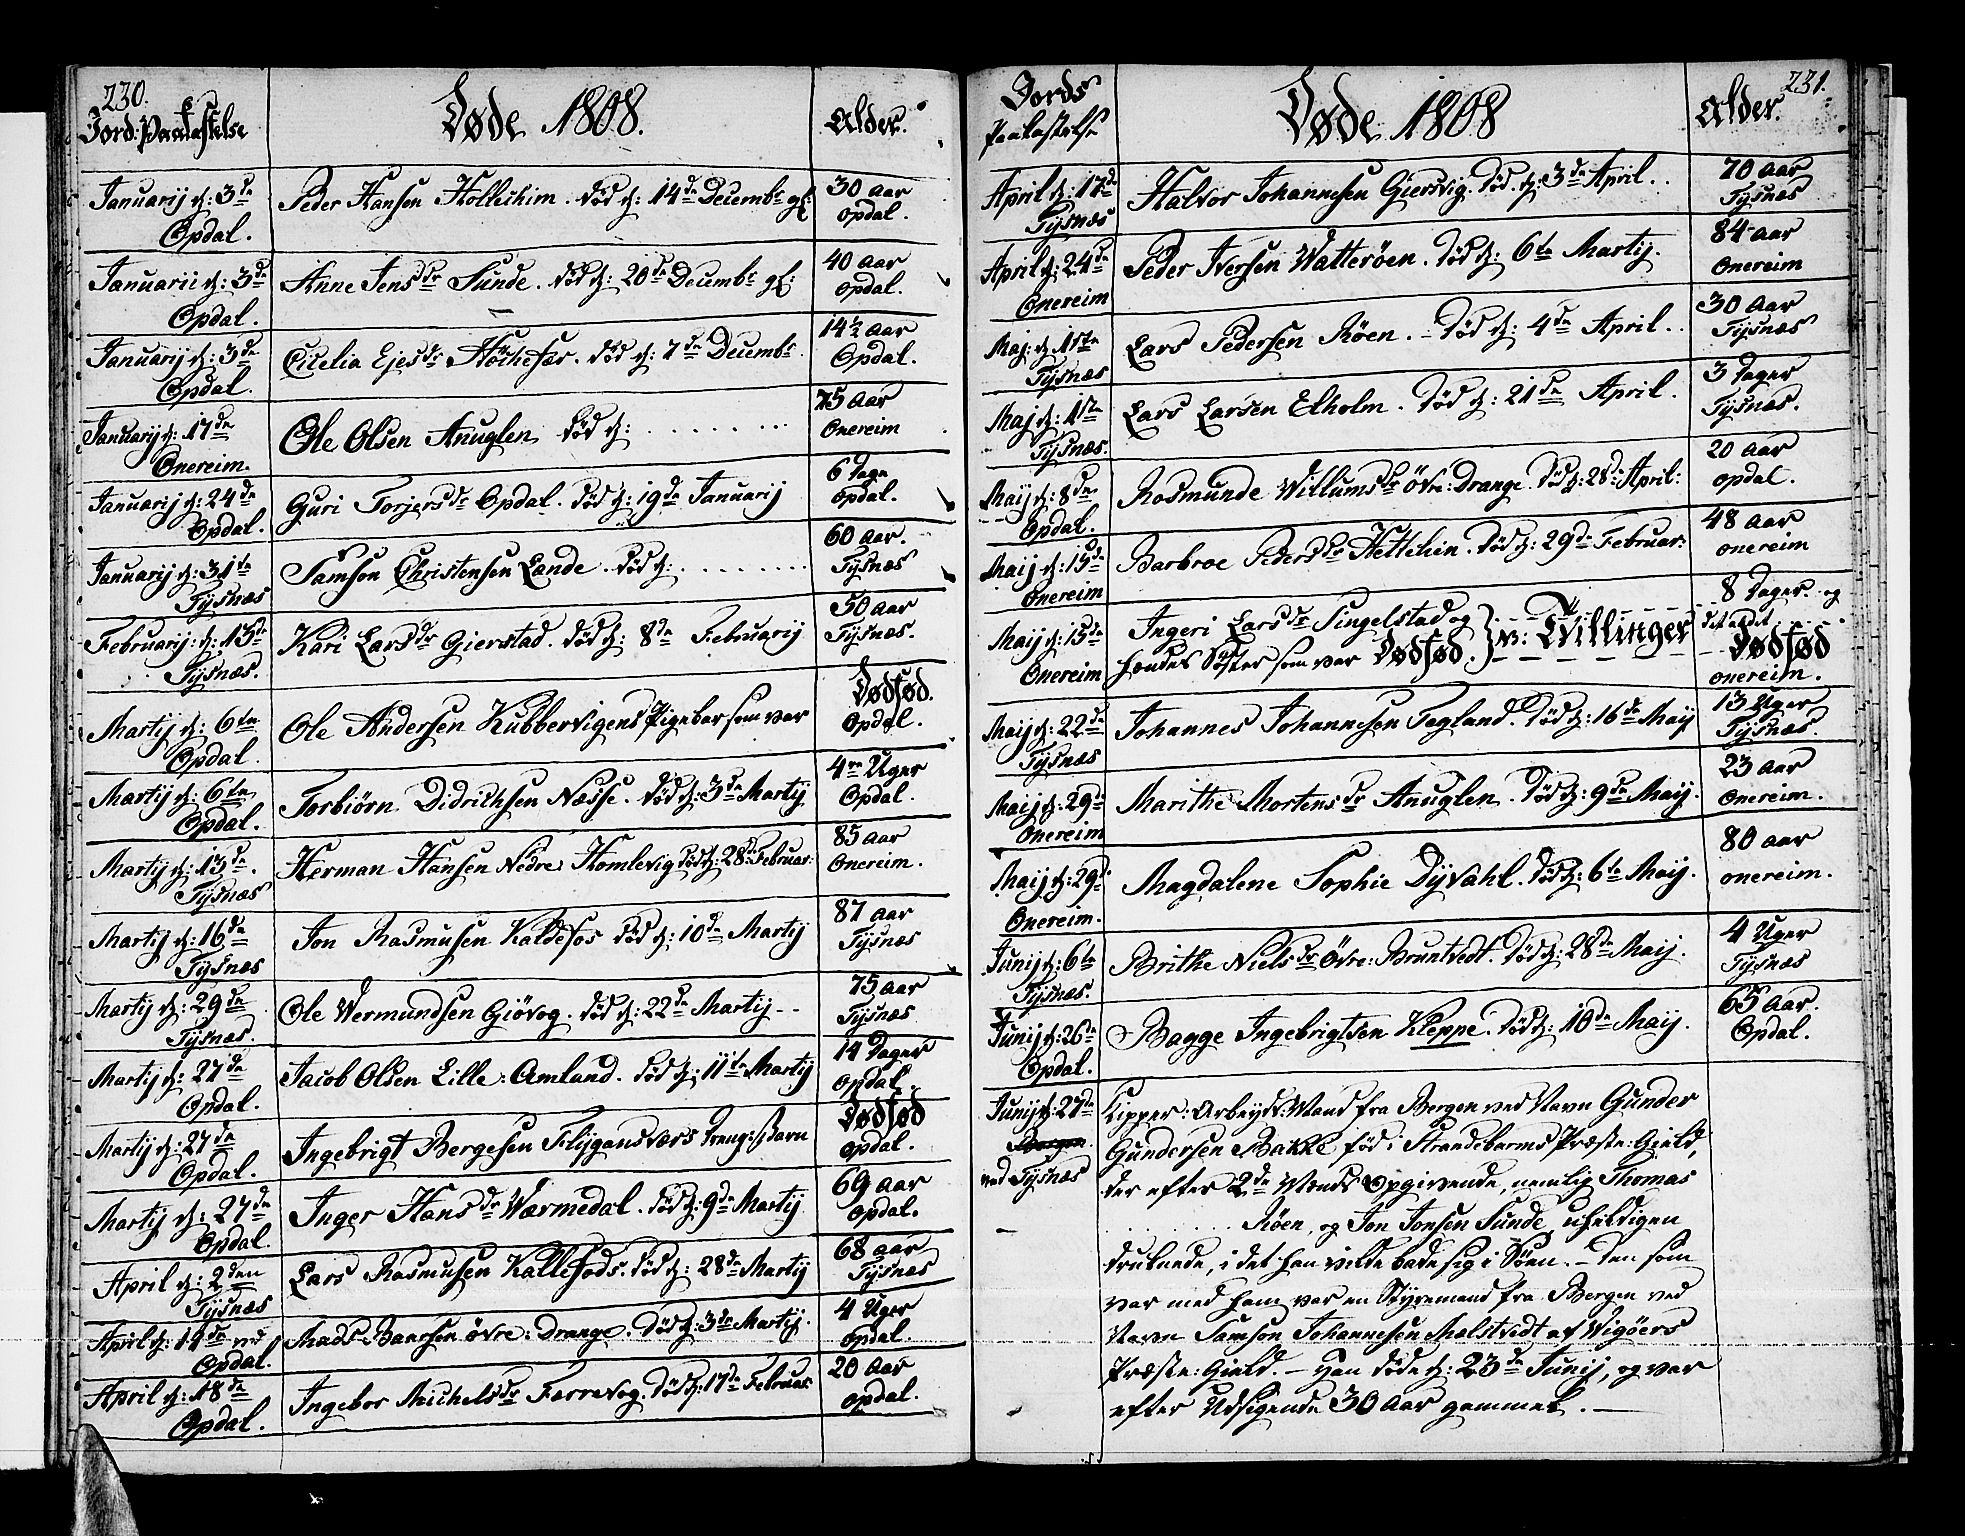 230.
Jord: Paakastelse
Døde 1808.
Alder.
Januarij d: 3de
Opdal.
Peder Hansen Kolleihim. død d: 14de Decembr gl:
30 Aar
Opdal.
Januarii d: 3de
Opdal.
Anne Jensdr Sunde. død d: 20de Decembr gl:
40 Aar
Opdal.
Januarij d: 3de
Opdal.
Cicelia Ejesdr Høchefær. død d: 7de Decembr
14½ Aar
Opdal.
Januarij d: 17de
Onereim.
Ole Olsen Anuglen død d: . . . . . . . .
75 Aar
Onereim
Januarij d: 24de
Opdal.
Guri Torjersdr Opdal. død d: 19de Januarij
6 Dage
Opdal.
Januarij d: 31te
Tÿsnæs
Samson Christensen Lande. død d: . . . . . . . .
60 Aar.
Tÿsnæs
Februarij: d: 15de
Tÿsnæs.
Kari Larsdr Gierstad. død d: 8de Februarij
50 Aar
Tÿsnæs.
Martij d: 6te
Opdal.
Ole Andersen Kubbervigens Pigebarn som var
Dødfød.
Opdal.
Martij d: 6te
Opdal.
Torbiörn Didrichsen Næsse. død d: 3de Martij
4re Uger
Opdal.
Martij d: 13de.
Tÿsnæs
Herman Hansen Nedre Homlevig død d: 28de Februar:
85 Aar
Onereim.
Martij d: 16de
Tÿsnæs
Jon Rasmusen Kaldefos død d: 10de Martij
87 Aar
Tÿsnæs
Martij d: 29de
Tÿsnæs.
Ole Wermundsen Giövog. død d: 22de Martij - -
75 Aar
Tÿsnæs
Martij d: 27de
Opdal.
Jacob Olsen Lille: Amland. død d: 11te Martij
14 Dager
Opdal.
Martij d: 27de
Opdal.
Ingebrigt Bergesen Flÿgansværs Dreng: Barn
Dødfød
Opdal.
Martij d: 27de
Opdal.
Inger Hansdr Wærmedal. død d: 9de Martij
69 Aar
Opdal.
April d: 2den
Tÿsnæs
Lars Rasmusen Kallefods. død d: 28de Martij
68 Aar
Tÿsnæs
April d: 14de ved
Opdal.
Mads Baarsen övre: Drange. død d: 3de Martij.
4 Uger
Opdal.
April d: 18de
Opdal.
Ingebor Michelsdr Færrevog. død d: 17de Februar
20 Aar
Opdal.
231.
Jords
Paakastelse
Døde 1808
Alder.
April d: 17de
Tÿsnæs
Halvor Johannesen Giersvig. død d: 3de April. .
70 Aar
Tÿsnæs
April d: 24de
Onereim
Peder Iversen Watteröen. død d: 6te Martij.
84 Aar
Onereim
Maj: d: 1ste
Tÿsnæs
Lars Pedersen Röen. - død d: 4de April. .
30 Aar
Tÿsnæs
Maj d: 1ste
Tÿsnæs.
Lars Larsen Elholm. død d: 21de April.
3 Dager
Tÿsnæs.
Maij d: 8de
Opdal.
Rosmunde Willumsdr Övre: Drange. død d: 28de April:
20 Aar
Opdal.
Maij d: 15de
Onereim
Barbroe Pedersdr Hettelein. død d: 29de Februar:
48 Aar
Onereim
Maij d: 15de
Onereim
Ingeri Larsdr Singelstad og
hendes Söster som var Dødfød. } N: Tvillinger
8 Dager. og
det andet
Dødfød
Onereim.
Maij d: 22de
Tÿsnæs
Johannes Johannesen Tegland. død d: 16de Maij
13 Uger
Tÿsnæs.
Maij d: 29de
Onereim
Marithe Mortensdr Anuglen. død d: 9de Maij.
23 Aar
Onereim.
Maij d: 29de
Onereim.
Magdalene Sophie Dÿvahl. død d: 6te Maij.
80 Aar
Onereim.
Junij d: 6te
Tÿsnæs.
Brithe Nielsdr Övre: Bruntvedt. død d: 28de Maij.
4 Uger
Tÿsnæs
Junij d: 26de
Opdal.
Bagge Ingebrigtsen Kleppe. død d: 10de Maij.
65 Aar.
Opdal.
Junij d: 27de
ved Tÿsnæs
Lipper: Arbeÿds: Mand fra Bergen ved Navn Gunder
Gundersen Bakke, fød i Strandebarms Præste: Gield,
der efter 2de Mænds Opgivende, nemlig Thomas
. . . . . . . . Röen, og Jon Jonsen Sunde, uheldigen
druknede, i det han vilde bade sig i Söen. - Den som
var med ham var en Stÿremand fra Bergen ved
Navn Samson Johannesen Mælstvedt af Wigöers
Præste: Gield. - Han døde d: 23de Junij, og var
efter Udsigende 30 Aar gammel. -